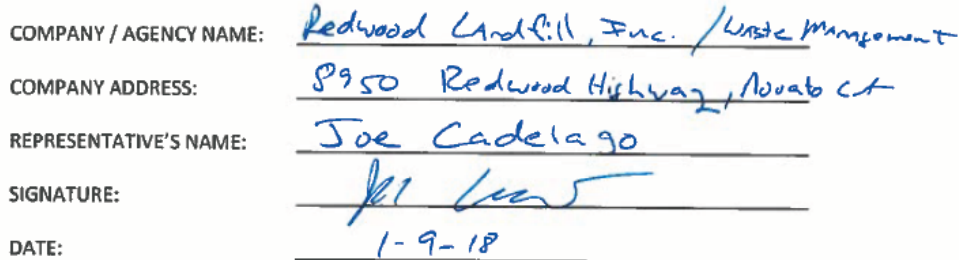 COMPANY / AGENCY NAME: Redwood Landfill, Inc. / Waste Management
COMPANY ADDRESS: 8950 Redwood Highway, Novato CA
REPRESENTATIVE'S NAME: Joe Cadelago
SIGNATURE:
DATE: 1-9-18